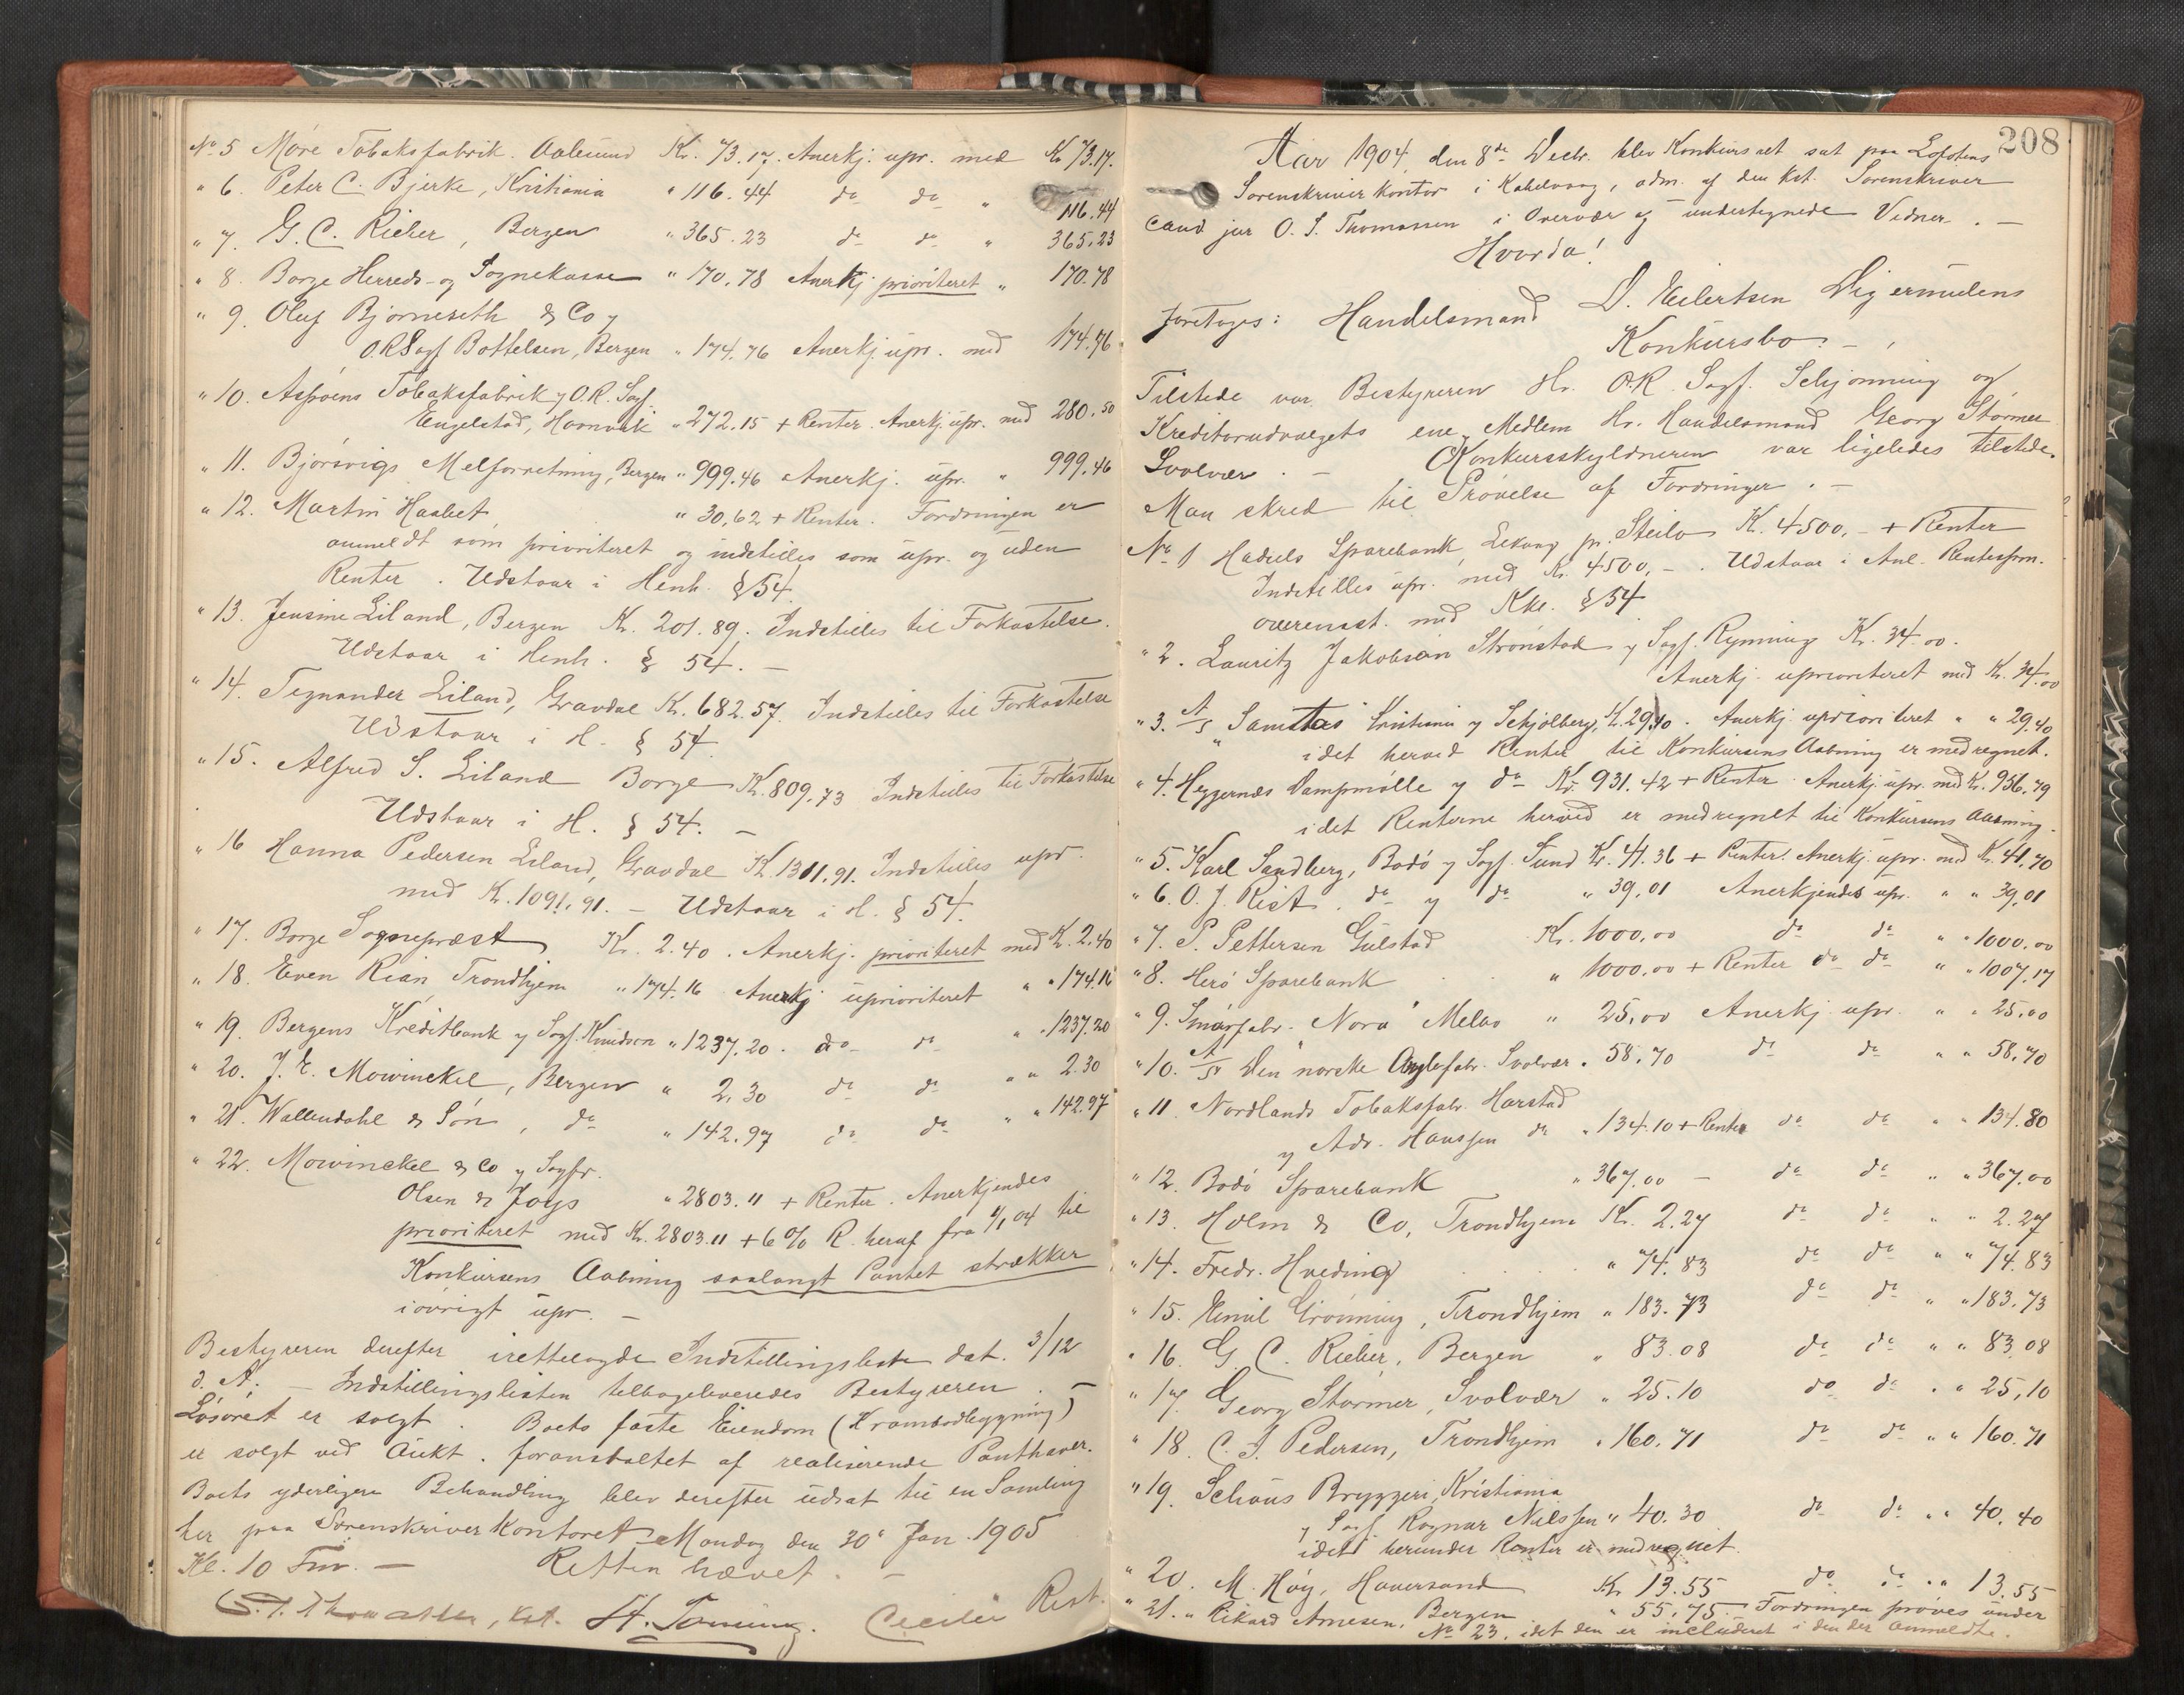 No 5 Møre Tobaksfabrik. Aalesund Kr. 73.17. Anerkj. upr. med Kr 73.17.
" 6. Peter C. Bjerke, Kristiania " 116.44 do do " 116.44
" 7. G. C. Rieber, Bergen " 365.23 do do " 365.23
" 8. Borge Herreds- og Sognekasse " 170.78 Anerkj prioriteret " 170.78
" 9. Oluf Bjørneseth & Co v
O.R.Sagf Bottelsen, Bergen " 174.76 Anerkj. upr. med 174.76
" 10. Aspøens Tobaksfabrik v O.R. Sagf.
Engelstad, " 272.15 + Renter. Anerkj. upr. med 280.50
" 11. Bjørsvigs Melforretning, Bergen " 999.46 Anerkj. upr. " 999.46
" 12. Martin Hasbet " 30,62 + Renter. Fordringen er
anmeldt som prioriteret og indstilles som upr. og uden
Renter. Udstaar i Henh. § 54.
" 13. Jensine Liland, Bergen Kr. 201.89. Indstilles til Forkastelse.
Udstaar i Henh. § 54. —
" 14. Tegnander Liland, Gravdal Kr. 682.57. Indstilles til Forkastelse
Udstaar i H. § 54
" 15. Alfred S. Liland Borge Kr. 809.73 Indstilles til Forkastelse
Udstaar i H. § 54. —
" 16 Hanna Pedersen Liland, Gravdal Kr. 1311.91. Indstilles upr.
med Kr. 1091.91. — Udstaar i H. § 54.
" 17. Borge Sognepræst Kr. 2.40. Anerkj. prioriteret med Kr. 2.40
" 18. Even Rian Trondhjem " 174.16 Anerkj uprioriteret " " 174.16
" 19. Bergens Kreditbank v Sagf. Knudsen " 1237.20. do do " " 1237.20
" 20. J. E. Mowinckel, Bergen " 2,30 do do " " 2.30
" 21. Wallendahl & Søn, do " 142.97 do do " " 142.97
" 22. Mowinckel & Co v Sagfr.
Olsen & Joys " 2803.11 + Renter. Anerkjendes
prioriteret med Kr. 2803.11 + 6% R. heraf fra 1/1 04 til
Konkursens Aabning saalangt Pantet strækker
iøvrigt upr. —
Bestyreren derefter irettelagde Indstillingsliste dat. 3/12
d. A. — Indstillingslisten tilbageleveredes Bestyreren. —
Løsøret er solgt. Boets faste Eiendom (Krambodbygning)
er solgt ved Aukt. foranstaltet af realiserende Panthaver.
Boets yderligere Behandling blev derefter udsat til en Samling
her paa Sorenskriverkontoret Mandag den 30' Jan. 1905
Kl. 10 Fm. — Retten hævet. —
O. S. Thomassen, kst. H. Cecilie Rist.
208
Aar 1904, den 8de Decbr. blev Konkursret sat paa Lofotens
Sorenskriverkontor i Kabelvaag, adm. af den kst. Sorenskriver
cand jur O. S. Thomassen i Overvær af undertegnede Vidner. —
Hvorda!
Foretoges: Handelsmand D. Eilertsen Digermulens
Konkursbo. —
Tilstede var Bestyreren Hr. O.R. Sagf. Schjønning og
Kreditorudvalgets ene Medlem Hr. Handelsmand Georg Størmer
Svolvær. — Konkursskyldneren var ligeledes tilstede.
Man skred til Prøvelse af Fordringer. —
No 1 Hadsels Sparebank, Lekang pr. Steilo Kr. 4500,- + Renter
Indstilles upr. med Kr. 4500,-. Udstaar i Anl. Rentespm.
overensst. med Kkl. § 54
" 2. Lauritz Jakobsen Strønstad v Sagf. Rynning Kr. 34.00.
Anerkj. uprioriteret med Kr. 34.00
" 3. A/S "Samtas" Kristiania v Schjølberg, Kr. 29.40. Anerkj uprioriteret " " 29.40
idet herved Renter til Konkursens Aabning er medregnet.
" 4. Heggernæs Dampmølle v do Kr. 931.42 + Renter. Anerkj. upr. med Kr. 956.79
idet Renterne herved er medregnet til Konkursens Aabning.
" 5. Karl Sandberg, Bodø v Sagf. Sund Kr. 41.36 + Renter. Anerkj. upr. med Kr. 41,70
" 6. O. J. Rist. do v do " 39,01 Anerkjendes upr. " " 39,01
" 7. P. Pettersen Gulstad Kr. 1000,00 do do " " 1000.00
" 8. Herø Sparebank " 1000.00 + Renter do do " " 1007,17
" 9. Smørfabr. "Nora" Melbo " 25,00 Anerkj. upr. " " 25.00
" 10. A/S Den norske Anglefabr. Svolvær " 58.70 do do " " 58.70
" 11. Nordlands Tobaksfabr. Harstad
v Adv. Hanssen do " 134.10 + Renter do do " " 134.80
" 12. Bodø Sparebank " 367,00 — do do " " 367,00
" 13. Holm & Co, Trondhjem Kr. 2.27 do do " " 2.27
" 14. Fredr. Hveding " 74.83 do do " " 74.83
" 15. Emil Grønning, Trondhjem " 183.73 do do " " 183.73
" 16. G. C. Rieber, Bergen " 83.08 do do " " 83,08
" 17. Georg Størmer, Svolvær " 25.10 do do " " 25,10
" 18 C. A. Pedersen, Trondhjem " 160.71 do do " " 160.71
" 19. Schous Bryggeri, Kristiania
v Sagf. Ragnar Nilssen " 40.30 do do " " 40.40
idet herunder Renter er medregnet.
" 20. M. Høy, Haversand Kr 13.55 do do " " 13.55
" 21. " Rikard Arnesen, Bergen " 55.75 Fordringen prøves under
No 23. idet den er includeret i den der anmeldte.